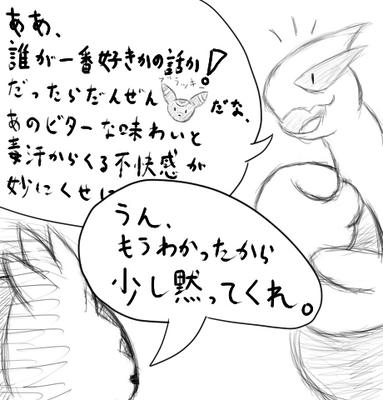 ああ、
誰が一番好きかの話か!
ブラッキー
だったらだんぜん だな、
あのビターな味わいと
毒汗からくる不快感が
妙にくせに
うん、
もうわかったから
少し黙ってくれ。